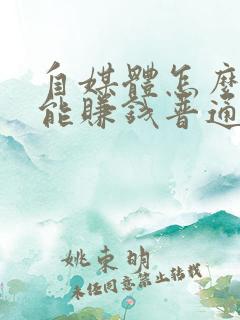 自媒體怎麼
能賺錢普通
姚東明
未經同意禁止轉載